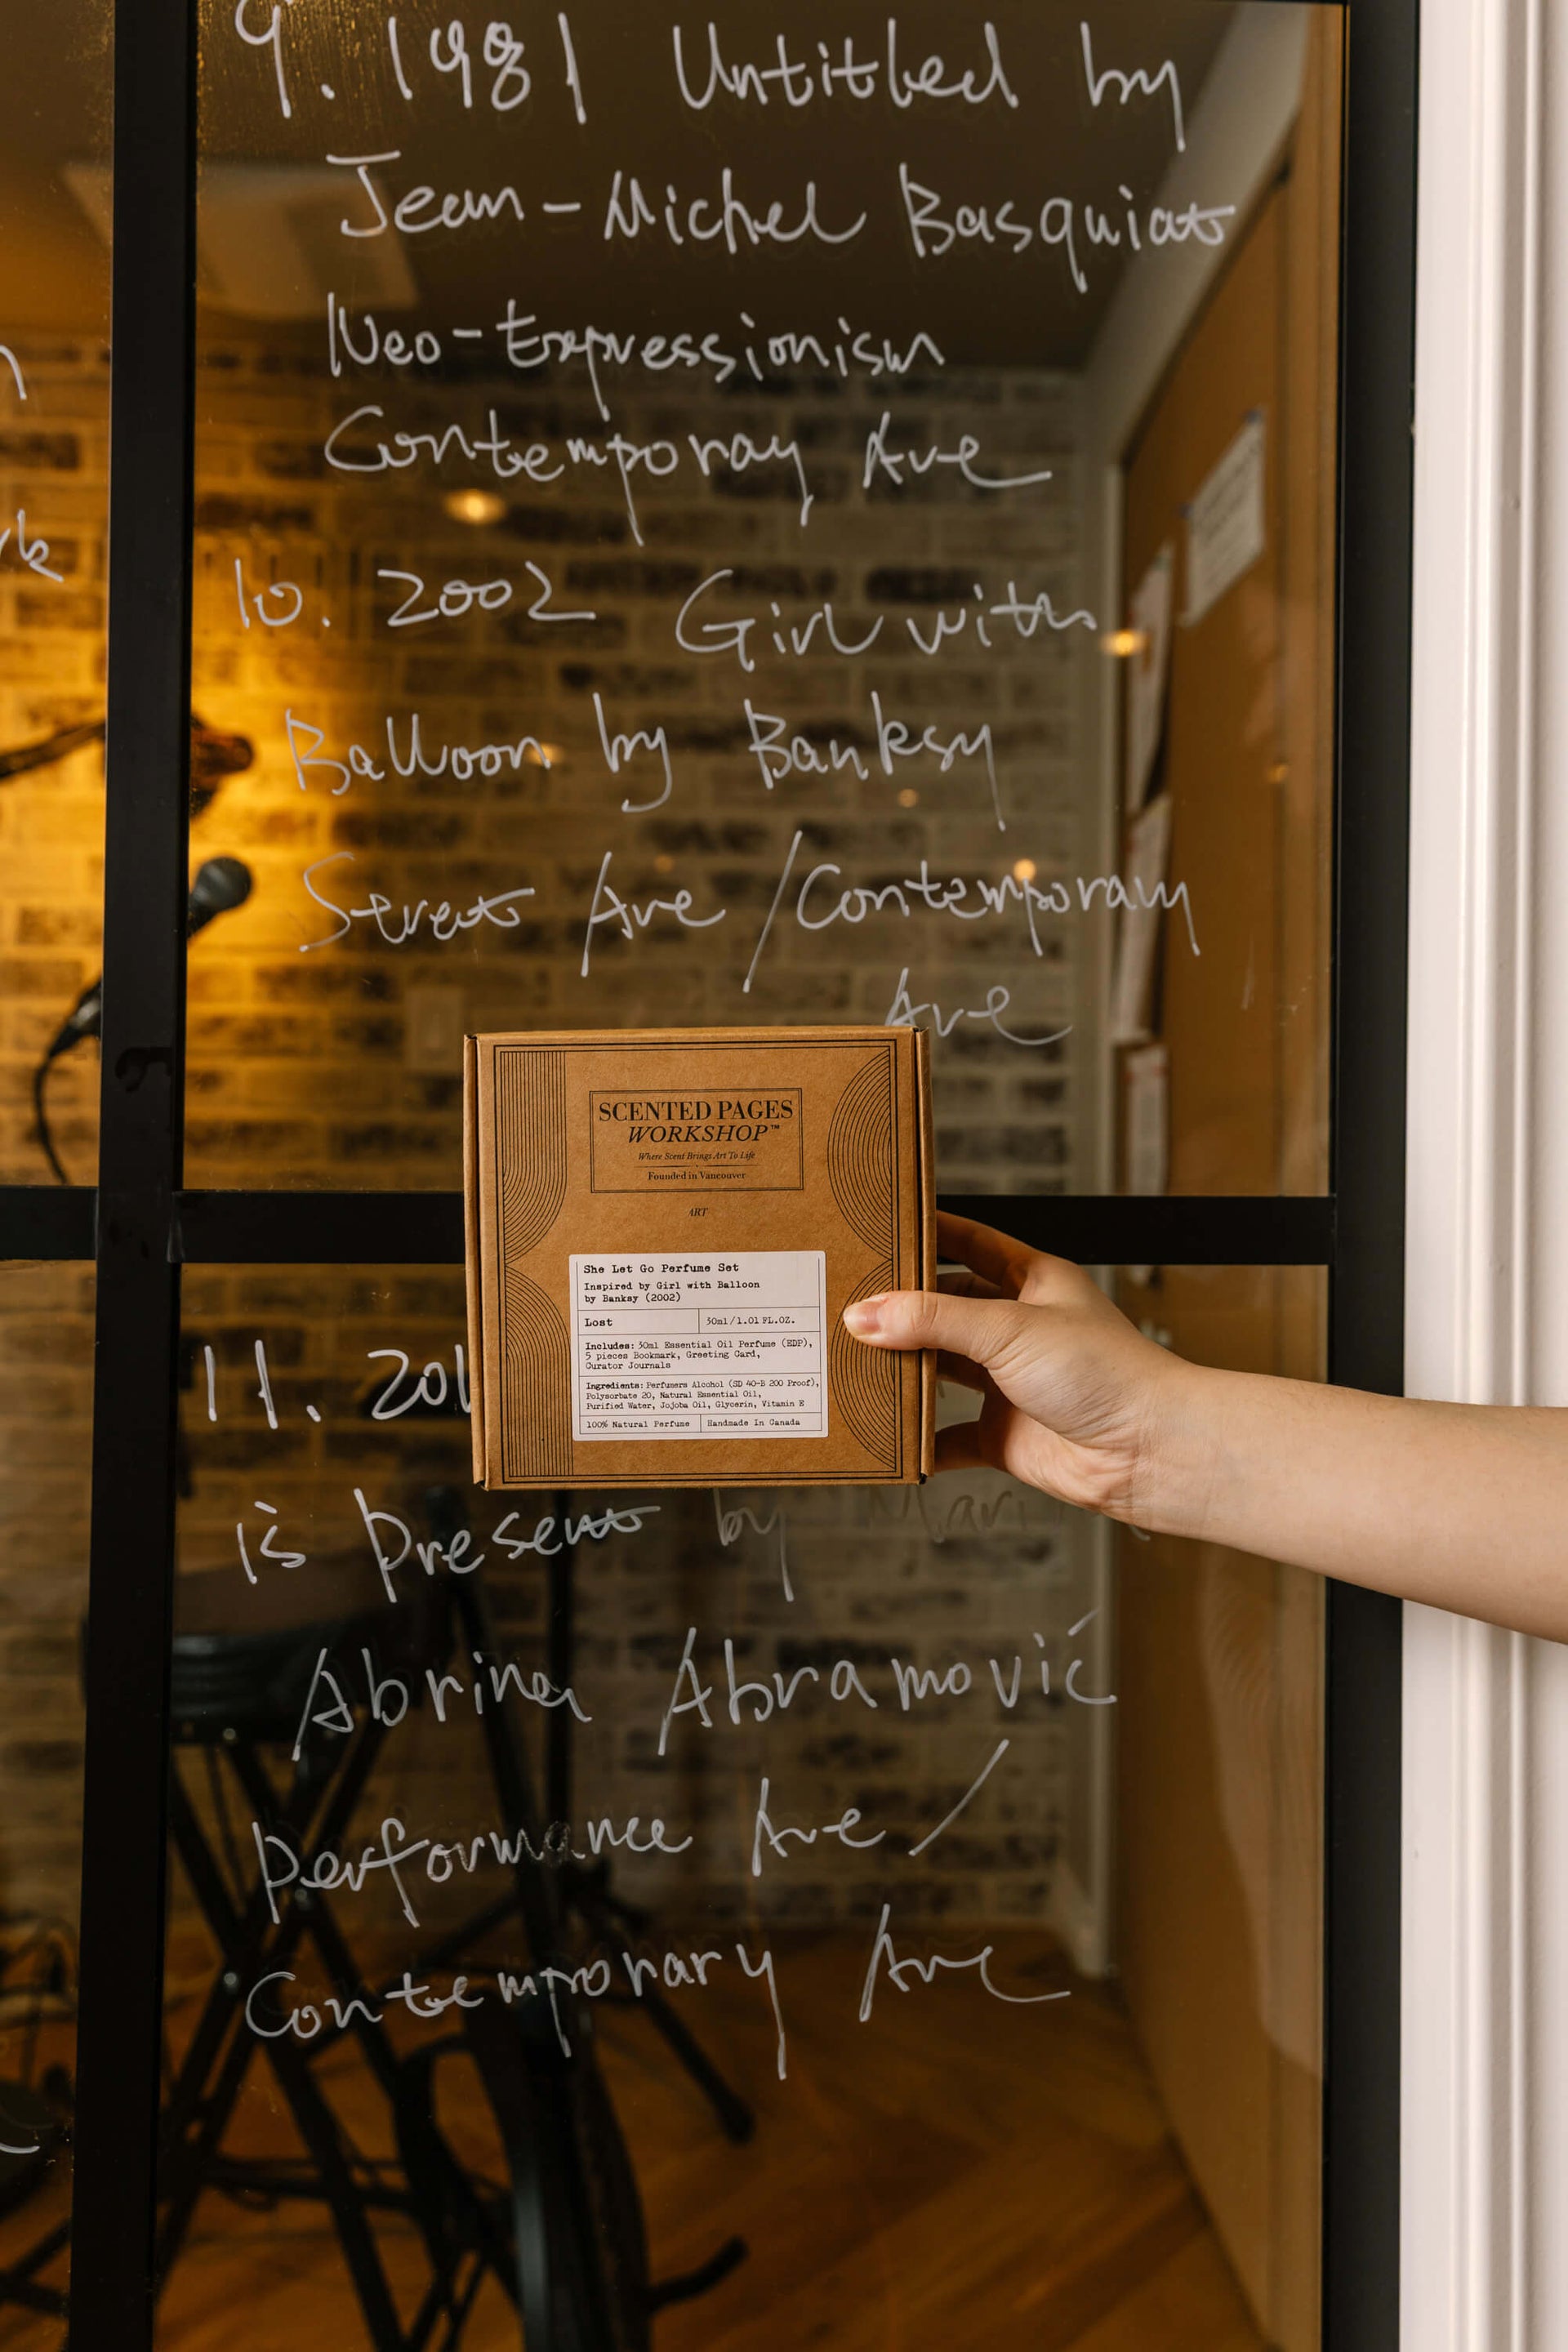 9. 1981 Untitled by
Jean-Michel Basquiat
Neo-Expressionism
Contemporay Ave
10. 2002 Girl with
Balloon by Banksy
Street Ave / Contemporary
Ave
SCENTED PAGES
WORKSHOP™
Where Scent Brings Art To Life
Founded in Vancouver
ART
She Let Go Perfume Set
Inspired by Girl with Balloon
by Banksy (2002)
Lost 30ml/1.01 FL.OZ.
Includes: 30ml Essential Oil Perfume (EDP),
5 pieces Bookmark, Greeting Card,
Curator Journals
Ingredients: Perfumers Alcohol (SD 40-B 200 Proof),
Polysorbate 20, Natural Essential Oil,
Purified Water, Jojoba Oil, Glycerin, Vitamin E
100% Natural Perfume Handmade In Canada
11. 201
is Present by Mari
Abrina Abramović
Performance Ave /
Contemporary Ave